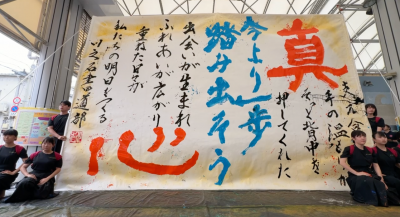 真
手の温
そっと背中を
押してくれた
今より一歩
踏み出そう
出会いが生まれ
ふれあいが広がり
重ねた日々が
私たちの明日をつくる
心
書道部